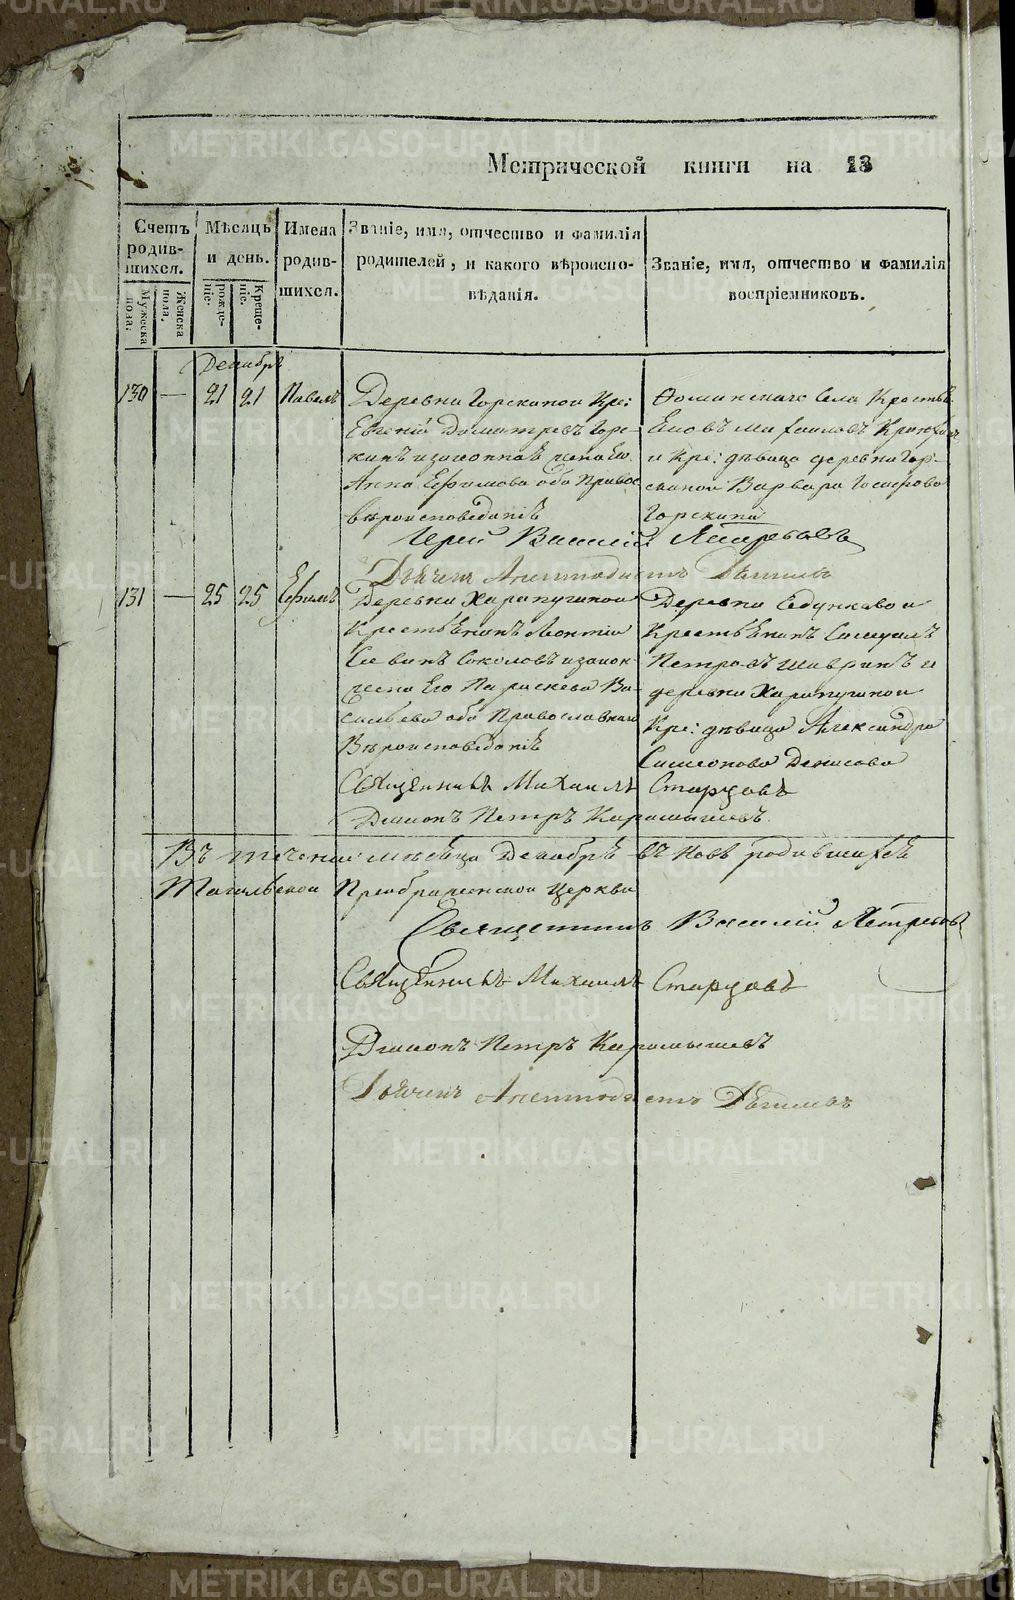 Метрической книги на 13
Счетъ родив-шихся.
Мужеска пола.
Женска пола.
Мѣсяцъ и день.
рожде-ніе.
Креще-ніе.
Имена родив-шихся.
Званіе, имя, отчество и фамилія родителей, и какого вѣроиспо-вѣданія.
Званіе, имя, отчество и фамилія воспріемниковъ.
Декабрь
130 — 21 21 Павелъ
Деревни Горскиной Кре:
Евгеній Димитревъ Горс-
кинъ и законная жена Его
Анна Ефимова оба Правос
вѣроисповеданія
Фоминскаго села Крестья
и Кре: дѣвица деревни Гор-
скиной Варвара
Горскина
Іерей Василій Ястребовъ
Дьячекъ Депиловъ
131 — 25 25 Ефимъ
Деревни Харапугиной
Крестьянинъ Леонтій
Савинъ Соколовъ и закон
жена Его Параскева Ва-
сильева оба Православнаго
Вѣроисповеданія
Деревни Едунковой
Крестьянинъ Самуилъ
Петровъ Шавринъ и
деревни Харапугиной
Кре: дѣвица Александра
Симеонова Денисова
Священникъ Михаилъ Старцовъ
Діаконъ Петръ Карамышевъ
Въ теченіи мѣсяца Декабря въ новъ родившихся
Тагильской Преображенской Церкви
Священникъ Василій Ястребовъ
Священникъ Михаилъ Старцовъ
Діаконъ Петръ Карамышевъ
Дьячекъ Депиловъ
METRIKI.GASO-URAL.RU